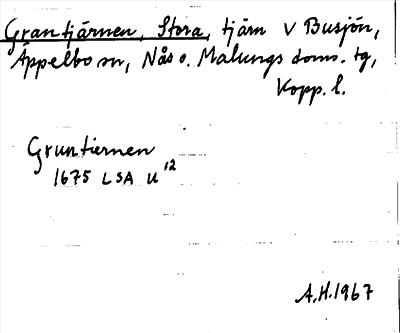 Grantjärnen, Stora, tjärn V Busjön,
Äppelbo sn, Nås o. Malungs doms. tg,
Kopp. l.
Gruntiernen
1675 LSA U 12
A.H. 1967